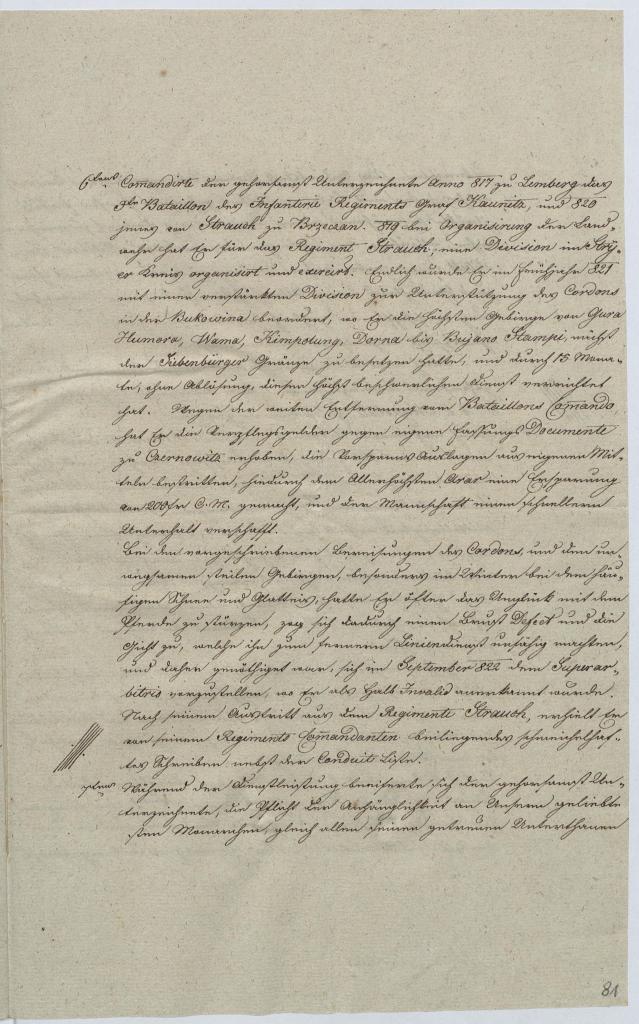 6tens Comandirte der gehorsamst Unterzeichnete Anno 817 zu Lemberg das
3te Bataillon des Infanterie Regiments Graf Kaunitz, und 820
jenes von Strauch zu Brzezan. 819 bei Organisirung der Land-
wehr hat Er für das Regiment Strauch, eine Division im Stry-
er Kreis organisirt und exercirt. Endlich wurde Er im Frühjahr 821
mit einer verstärkten Division zur Unterstützung des Cordons
in der Bukowina beordert, wo Er die höchsten Gebirge von Gura
Humora, Wama, Kimpolung, Dorna bis Bujano Stampi, nächst
der Siebenbürger Gränze zu besetzen hatte, und durch 15 Mona-
te, ohne Ablösung, diesen höchst beschwerlichen Dienst verrichtet
hat. Wegen der weiten Entfernung vom Bataillons Comando,
hat Er die Verpflegsgelder gegen eigene Fassungs Documente
zu Czernowitz erhoben, die Vorspanns Auslagen aus eigenen Mit-
teln bestritten, hiedurch dem Allerhöchsten Ärar eine Ersparung
von 200 fr C.M. gemacht, und der Mannschaft einen schnellern
Unterhalt verschafft.
Bei den vorgeschriebenen Bereisungen des Cordons, und den un-
wegsamen steilen Gebirgen, besonders im Winter bei dem häu-
figen Schnee und Glatteis, hatte Er öfter das Unglück mit dem
Pferde zu stürzen, zog sich dadurch einen Brust Defect und die
Gicht zu, welche ihn zum fernern Liniendienst unfähig machten,
und daher genöthiget war, sich im September 822 dem Superar-
bitrio vorzustellen, wo Er als Halb Invalid anerkannt wurde.
Nach seinem Austritt aus dem Regimente Strauch, erhielt Er
von seinem Regiments Comandanten beiliegendes schmeichelhaf-
tes Schreiben nebst der Conduit Liste.
7tens Während der Dienstleistung beeiferte sich der gehorsamst Un-
terzeichnete, die Pflicht der Anhänglichkeit an Unsern geliebte-
sten Monarchen, gleich allen seinen getreuen Unterthanen
81